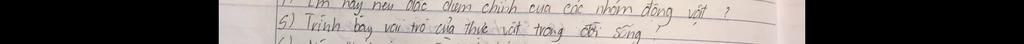 Em hãy nêu đặc điểm chính của các nhóm động vật ?
5) Trình bày vai trò của thực vật trong đời sống ?